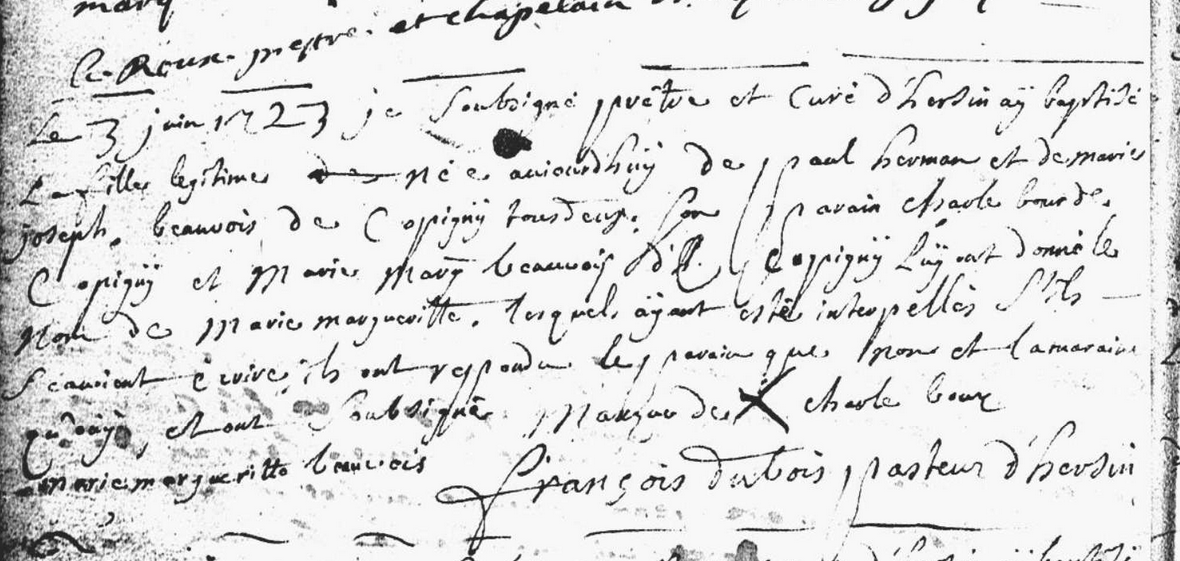 le Roux prestre et chapelain
Le 3 juin 1723 je soubsigné prêtre et Curé d'hersin aÿ baptisé
La fille legitime née aujourdhuÿ de paul herman et de marie
joseph beauvois de Copigny tous deux. son parain charle bour de
Copignÿ et Marie Marg beauvois d. Copignÿ Luÿ ont donné le
nom de Marie margueritte. lesquels aÿant esté interpellés s'ils
scavoient ecrire ils ont respondu le parain que non et la maraine
qu'ouÿ, et ont soubsigné Marque de X charle bour
marie margueritte beauvois
françois dubois pasteur d'hersin